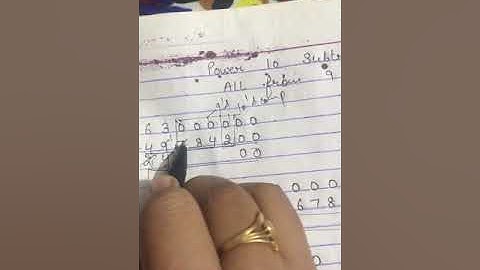 Power 10 Subt
ALL from 9
9's 10's comp
6 3 0 0 0 0 0 0
4 9 8 4 2 0 0
2 0 0
0 0 0
6 7 8